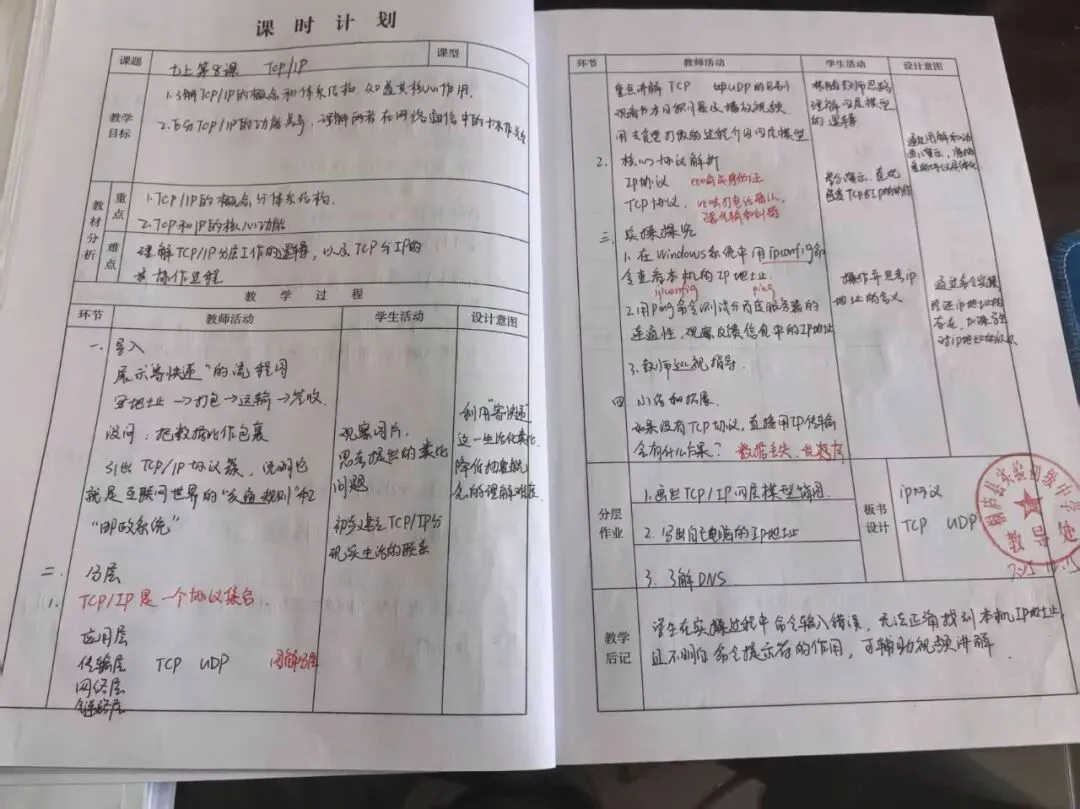 课时计划
课题 七上第8课 TCP/IP 课型
教学目标
1.了解TCP/IP的概念和体系结构,知道其核心作用.
2.区分TCP/IP的功能差异,理解两者在网络通信中的协作关系
教材分析
重点
1.TCP/IP的概念与体系结构.
2.TCP和IP的核心功能
难点
理解TCP/IP分层工作的逻辑,以及TCP与IP的
协作过程
教学过程
环节 教师活动 学生活动 设计意图
一. 导入
展示"寄快递"的流程图
写地址→打包→运输→签收.
设问:把数据比作包裹
引出TCP/IP协议簇,说明它
就是互联网世界的"交通规则"和
"邮政系统"
观察图片,
思考提出的类比
问题
初步建立TCP/IP与
现实生活的联系
利用"寄快递"
这一生活化类比
降低抽象概
念的理解难度.
二. 分层
1. TCP/IP是一个协议集合.
应用层
传输层 TCP UDP 图解分层
网络层
链路层
环节 教师活动 学生活动 设计意图
重点讲解TCP 和UDP的区别
观看书方目标问题及播放视频
用去食堂打饭的过程介绍四层模型
根据教师思路
理解四层模型
的逻辑
2. 核心协议解析
IP协议
TCP协议.
身份证
打电话确认,
通过图解和动
画演示,
TCP和IP的协作
三. 实操探究
1.在Windows系统中用ipconfig命
令查看本机的IP地址.
ipconfig ping
2.用ping命令测试与百度服务器的
连通性,观察反馈信息中的IP地址
3.教师巡视指导.
操作并思考ip
地址的含义
通过命令实操
验证ip地址的
存在,加深学生
对ip地址的认识
四 小结和拓展.
如果没有TCP协议,直接用IP传输
会有什么后果? 数据丢失、乱序
分层作业
1.画出TCP/IP四层模型简图.
2.写出自己电脑的IP地址
3.了解DNS
板书设计
ip协议
TCP UDP
桐庐县实验初级中学
教导处
教学后记
学生在实操过程中命令输入错误,无法正确找到本机IP地址,
且不明白命令提示符的作用,可辅助视频讲解.